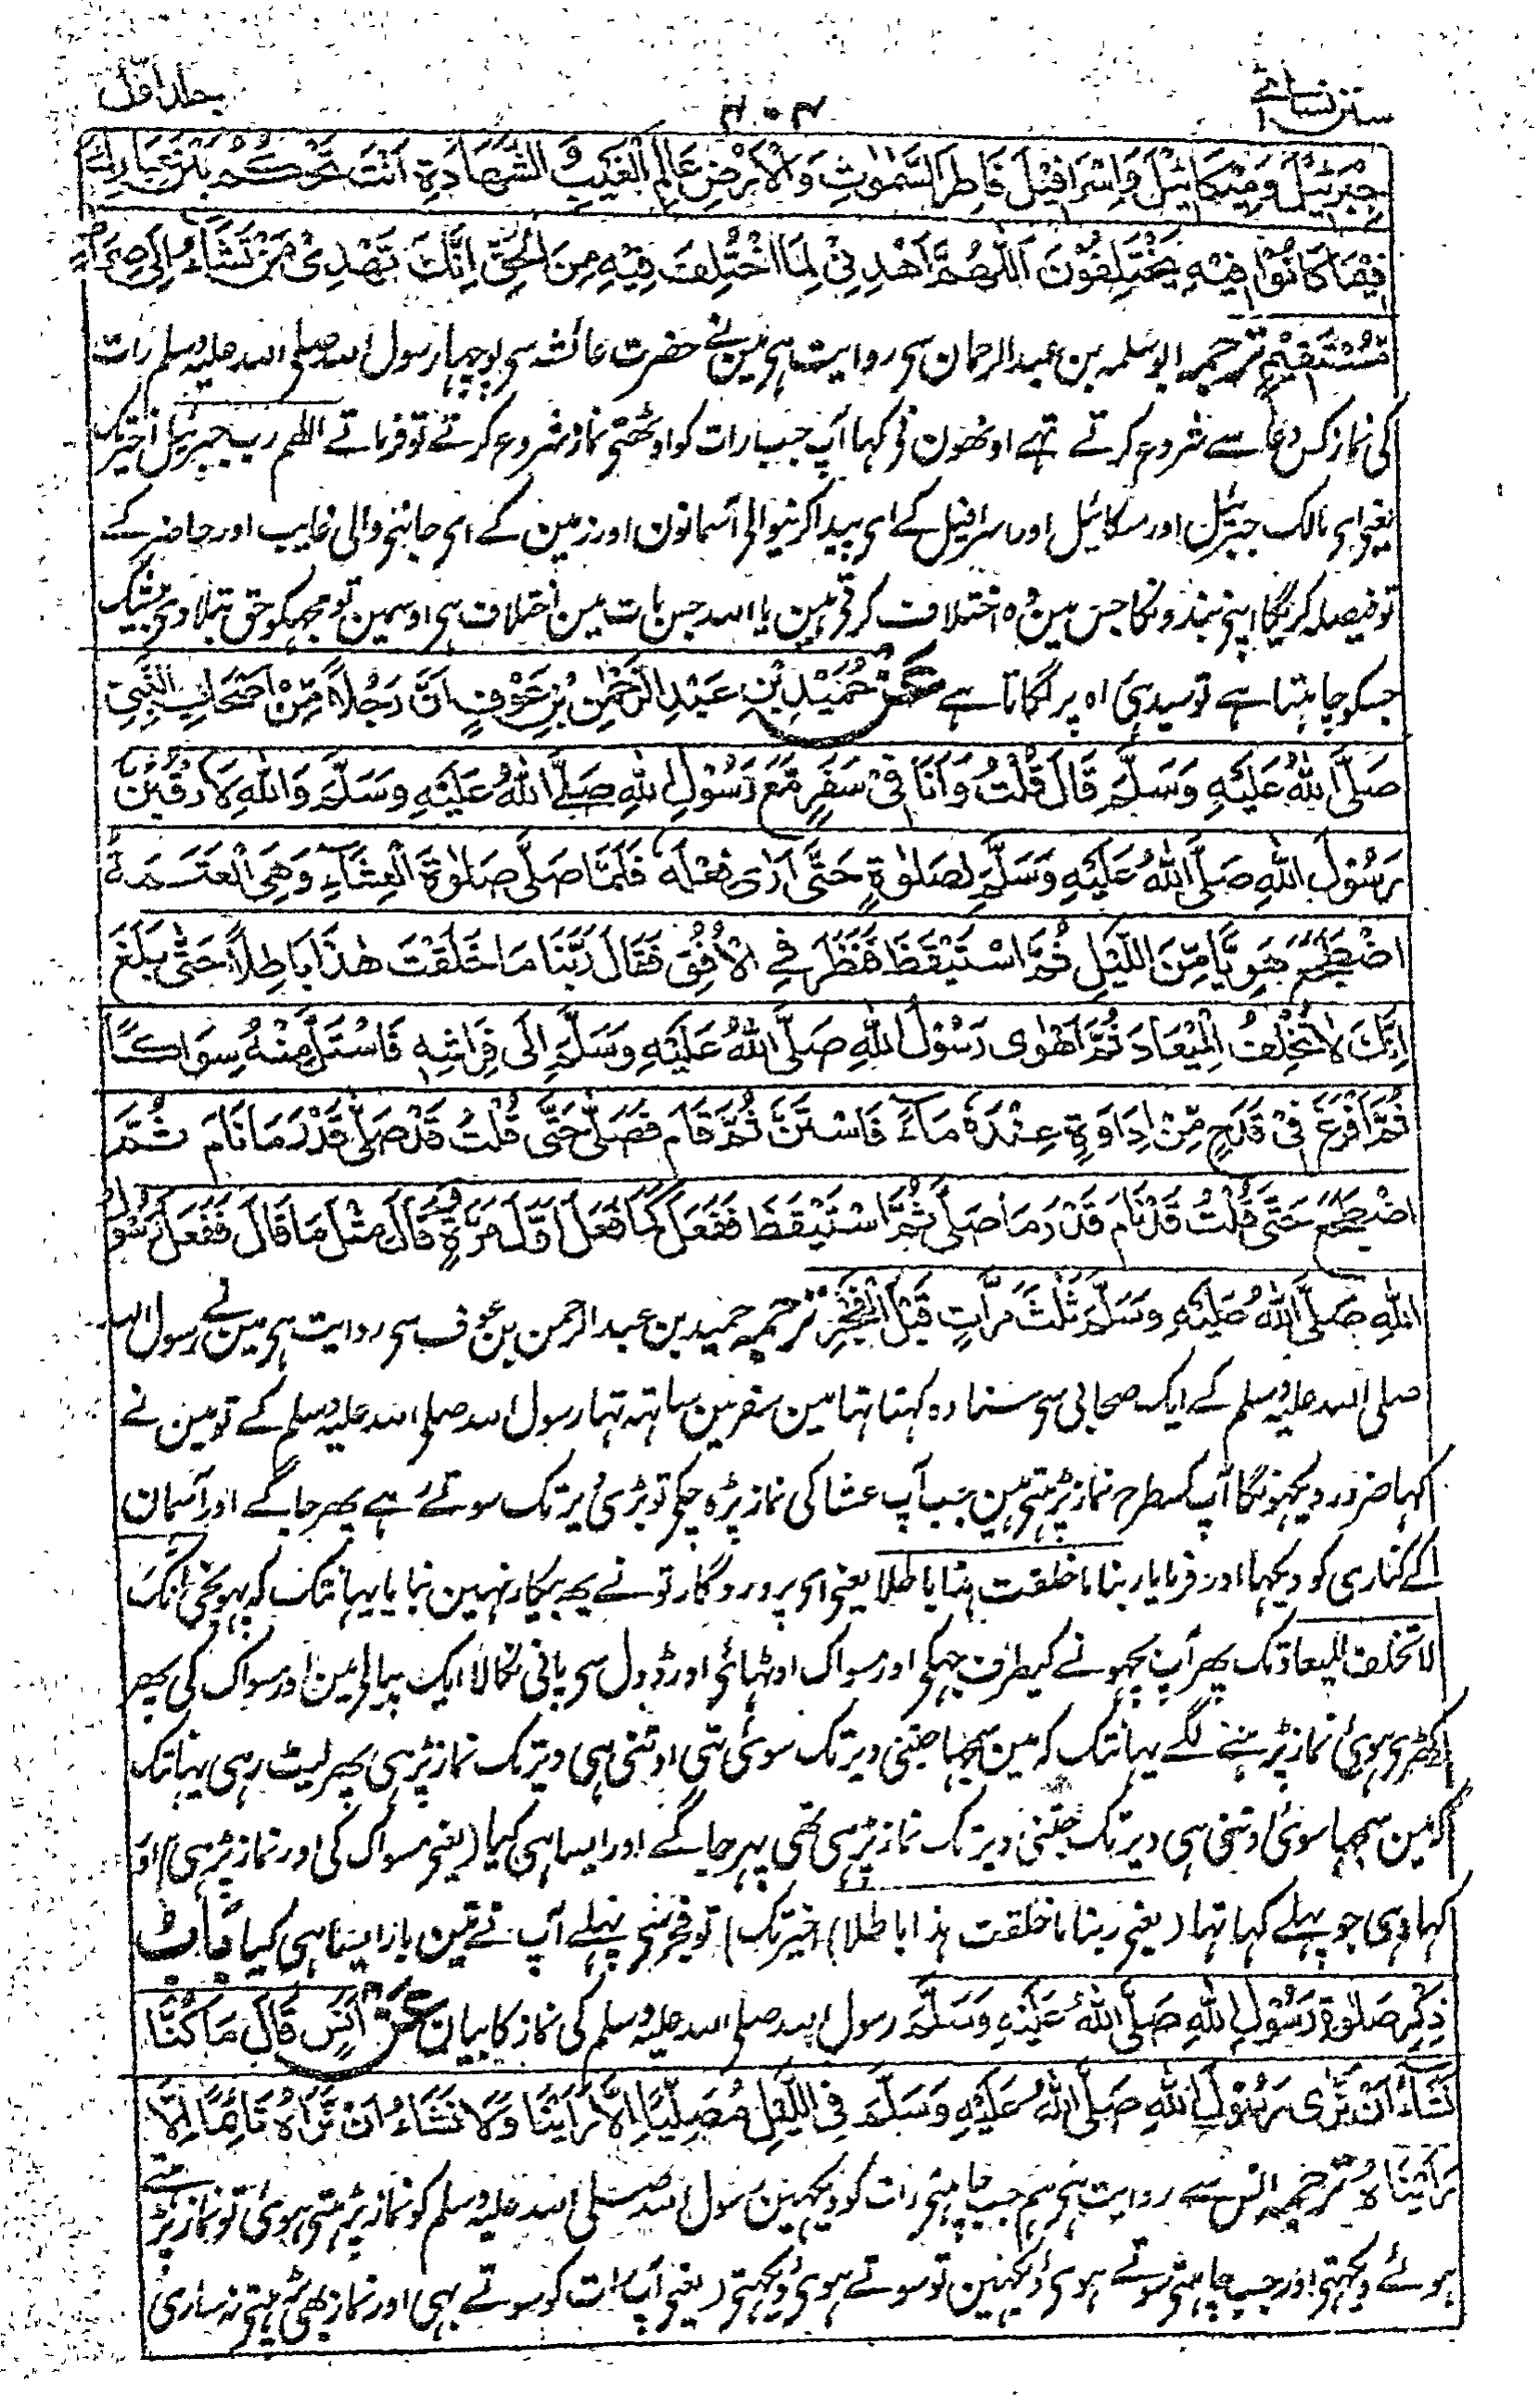 سنن نسائی
۴۰۴
جلد اوّل
جِبْرَئِيْلَ وَمِيْكَائِيْلَ وَاِسْرَافِيْلَ فَاطِرَ السَّمٰوٰتِ وَالْاَرْضِ عَالِمَ الْغَيْبِ وَ الشَّهَادَةِ اَنْتَ تَحْكُمُ بَيْنَ عِبَادِكَ
فِيْمَا كَانُوْا فِيْهِ يَخْتَلِفُوْنَ اَللّٰهُمَّ اَهْدِنِىْ لِمَا اخْتُلِفَ فِيْهِ مِنَ الْحَقِّ اِنَّكَ تَهْدِىْ مَنْ تَشَاءُ اِلٰى صِرَاطٍ
مُّسْتَقِيْمٍ ترجمہ ابو سلمہ بن عبدالرحمان سی روایت ہی مین نے حضرت عائشہ سی پوچہا رسول اللہ صلی اللہ علیہ وسلم رات
کی نماز کس دعا سے شروع کرتے تہے اونہون نی کہا آپ جب رات کو اوٹہتی نماز شروع کرتے تو فرماتے اللہم رب جبرئیل اخیر تک
یعنی ای مالک جبرئیل اور میکائیل اور اسرافیل کے ای پیدا کرنیوالی آسمانون اور زمین کے ای جاننی والی غایب اور حاضر کے
تو فیصلہ کریگا اپنی بندونکا جس مین وہ اختلاف کرتی ہین یا اللہ جس بات مین اختلاف ہی اوسمین تو مجہکو حق بتلا دی بیشک
جسکو چاہتا ہے تو سیدہی راہ پر لگاتا ہے عَنْ حُمَيْدِ بْنِ عَبْدِ الرَّحْمٰنِ بْنِ عَوْفٍ اَنَّ رَجُلًا مِّنْ اَصْحَابِ النَّبِىِّ
صَلَّى اللهُ عَلَيْهِ وَسَلَّمَ قَالَ قُلْتُ وَ اَنَا فِىْ سَفَرٍ مَّعَ رَسُوْلِ اللهِ صَلَّى اللهُ عَلَيْهِ وَسَلَّمَ وَاللهِ لَاَرْقُبَنَّ
رَسُوْلَ اللهِ صَلَّى اللهُ عَلَيْهِ وَسَلَّمَ لِصَلٰوةٍ حَتّٰى اَرٰى فِعْلَهٗ فَلَمَّا صَلّٰى صَلٰوةَ الْعِشَآءِ وَهِىَ الْعَتَمَةُ
اضْطَجَعَ هَوِيًّا مِّنَ اللَّيْلِ ثُمَّ اسْتَيْقَظَ فَنَظَرَ فِى الْاُفُقِ فَقَالَ رَبَّنَا مَا خَلَقْتَ هٰذَا بَاطِلًا حَتّٰى بَلَغَ
اِنَّكَ لَا تُخْلِفُ الْمِيْعَادَ ثُمَّ اَهْوٰى رَسُوْلُ اللهِ صَلَّى اللهُ عَلَيْهِ وَسَلَّمَ اِلٰى فِرَاشِهٖ فَاسْتَلَّ مِنْهُ سِوَاكًا
ثُمَّ اَفْرَغَ فِىْ قَدَحٍ مِّنْ اِدَاوَةٍ عِنْدَهٗ مَآءً فَاسْتَنَّ ثُمَّ قَامَ فَصَلّٰى حَتّٰى قُلْتُ قَدْ صَلّٰى قَدْرَ مَا نَامَ ثُمَّ
اضْطَجَعَ حَتّٰى قُلْتُ قَدْ نَامَ قَدْرَ مَا صَلّٰى ثُمَّ اسْتَيْقَظَ فَفَعَلَ كَمَا فَعَلَ اَوَّلَ مَرَّةٍ وَّ قَالَ مِثْلَ مَا قَالَ فَفَعَلَ رَسُوْلُ
اللهِ صَلَّى اللهُ عَلَيْهِ وَسَلَّمَ ثَلٰثَ مَرَّاتٍ قَبْلَ الْفَجْرِ ترجمہ حمید بن عبدالرحمن بن عوف سی روایت ہی مین نے رسول اللہ
صلی اللہ علیہ وسلم کے ایک صحابی سی سنا وہ کہتا تہا مین سفر مین ساتہہ تہا رسول اللہ صلی اللہ علیہ وسلم کے تو مین نے
کہا ضرور دیکہونگا آپ کسطرح نماز پڑہتی ہین جب آپ عشا کی نماز پڑہ چکی تو بڑی دیر تک سوتے رہے پھر جاگے اور آسمان
کے کناری کو دیکہا اور فرمایا ربنا ما خلقت ہذا باطلا یعنی ای پروردگار تو نے یہ بیکار نہین بنایا یہانتک کہ پہونچی انک
لا تخلف المیعاد تک پھر آپ بچہونے کیطرف جہکی اور مسواک اوٹہائی اور ڈول سی پانی نکالا ایک پیالی مین اور مسواک کی پھر
کھڑی ہوئی نماز پڑہنے لگے یہانتک کہ مین سمجہا جتنی دیر تک سوئی تہی اوتنی ہی دیر تک نماز پڑہی پھر لیٹ رہی یہانتک
کہ مین سمجہا سوئی اوتنی ہی دیر تک جتنی دیر تک نماز پڑہی تھی پھر جاگے اور ایسا ہی کیا (یعنی مسواک کی اور نماز پڑہی) اور
کہا وہی جو پہلے کہا تہا (یعنی ربنا ما خلقت ہذا باطلا) اخیر تک) تو فجر سی پہلے آپ نے تین بار ایسا ہی کیا بَابُ
ذِكْرِ صَلٰوةِ رَسُوْلِ اللهِ صَلَّى اللهُ عَلَيْهِ وَسَلَّمَ رسول اللہ صلی اللہ علیہ وسلم کی نماز کا بیان عَنْ اَنَسٍ قَالَ مَا كُنَّا
نَشَاءُ اَنْ نَّرٰى رَسُوْلَ اللهِ صَلَّى اللهُ عَلَيْهِ وَسَلَّمَ فِى اللَّيْلِ مُصَلِّيًا اِلَّا رَاَيْنَا وَلَا نَشَاءُ اَنْ نَّرَاهُ نَائِمًا اِلَّا
رَاَيْنَاهُ ترجمہ انس سے روایت ہی ہم جب چاہتی رات کو دیکہین رسول اللہ صلی اللہ علیہ وسلم کو نماز پڑہتی ہوئی تو نماز پڑہتے
ہوئے دیکہتی اور جب چاہتی سوتے ہوئی دیکہین تو سوتے ہوئی دیکہتی (یعنی آپ رات کو سوتے بہی اور نماز بھی پڑہتی نہ ساری